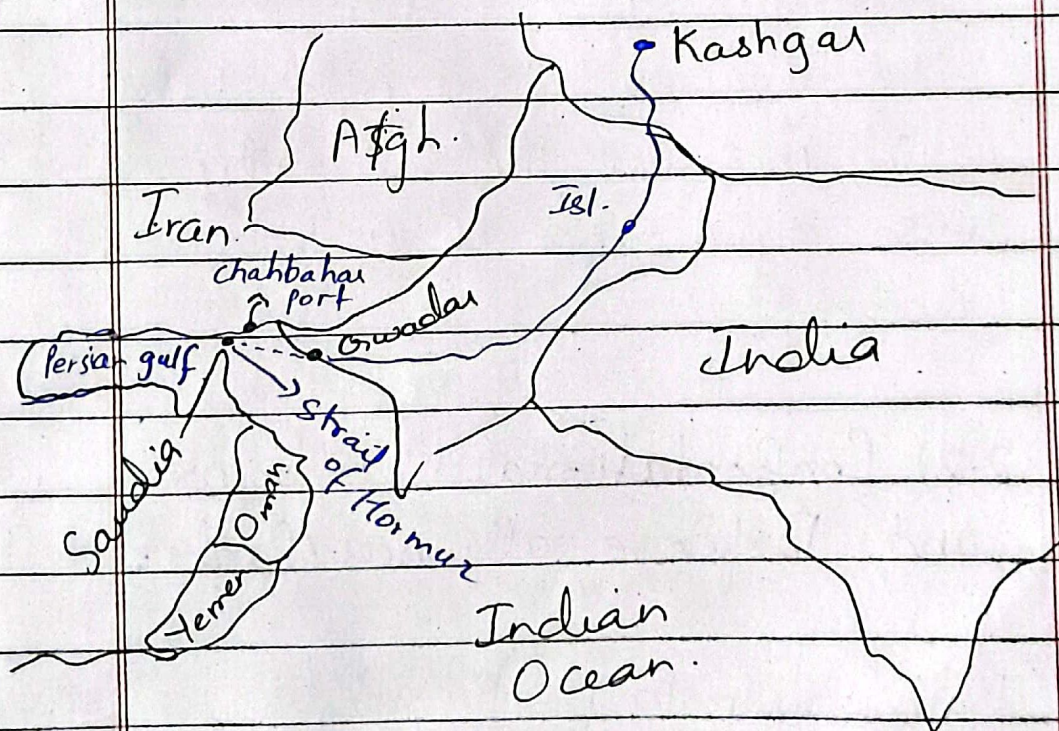 Kashgar
Afgh.
Isl.
Iran.
Chahbahar
port
Gwadar
Persian gulf
India
Strait
of
Hormuz
Saudia
Oman
Yemen
Indian
Ocean.